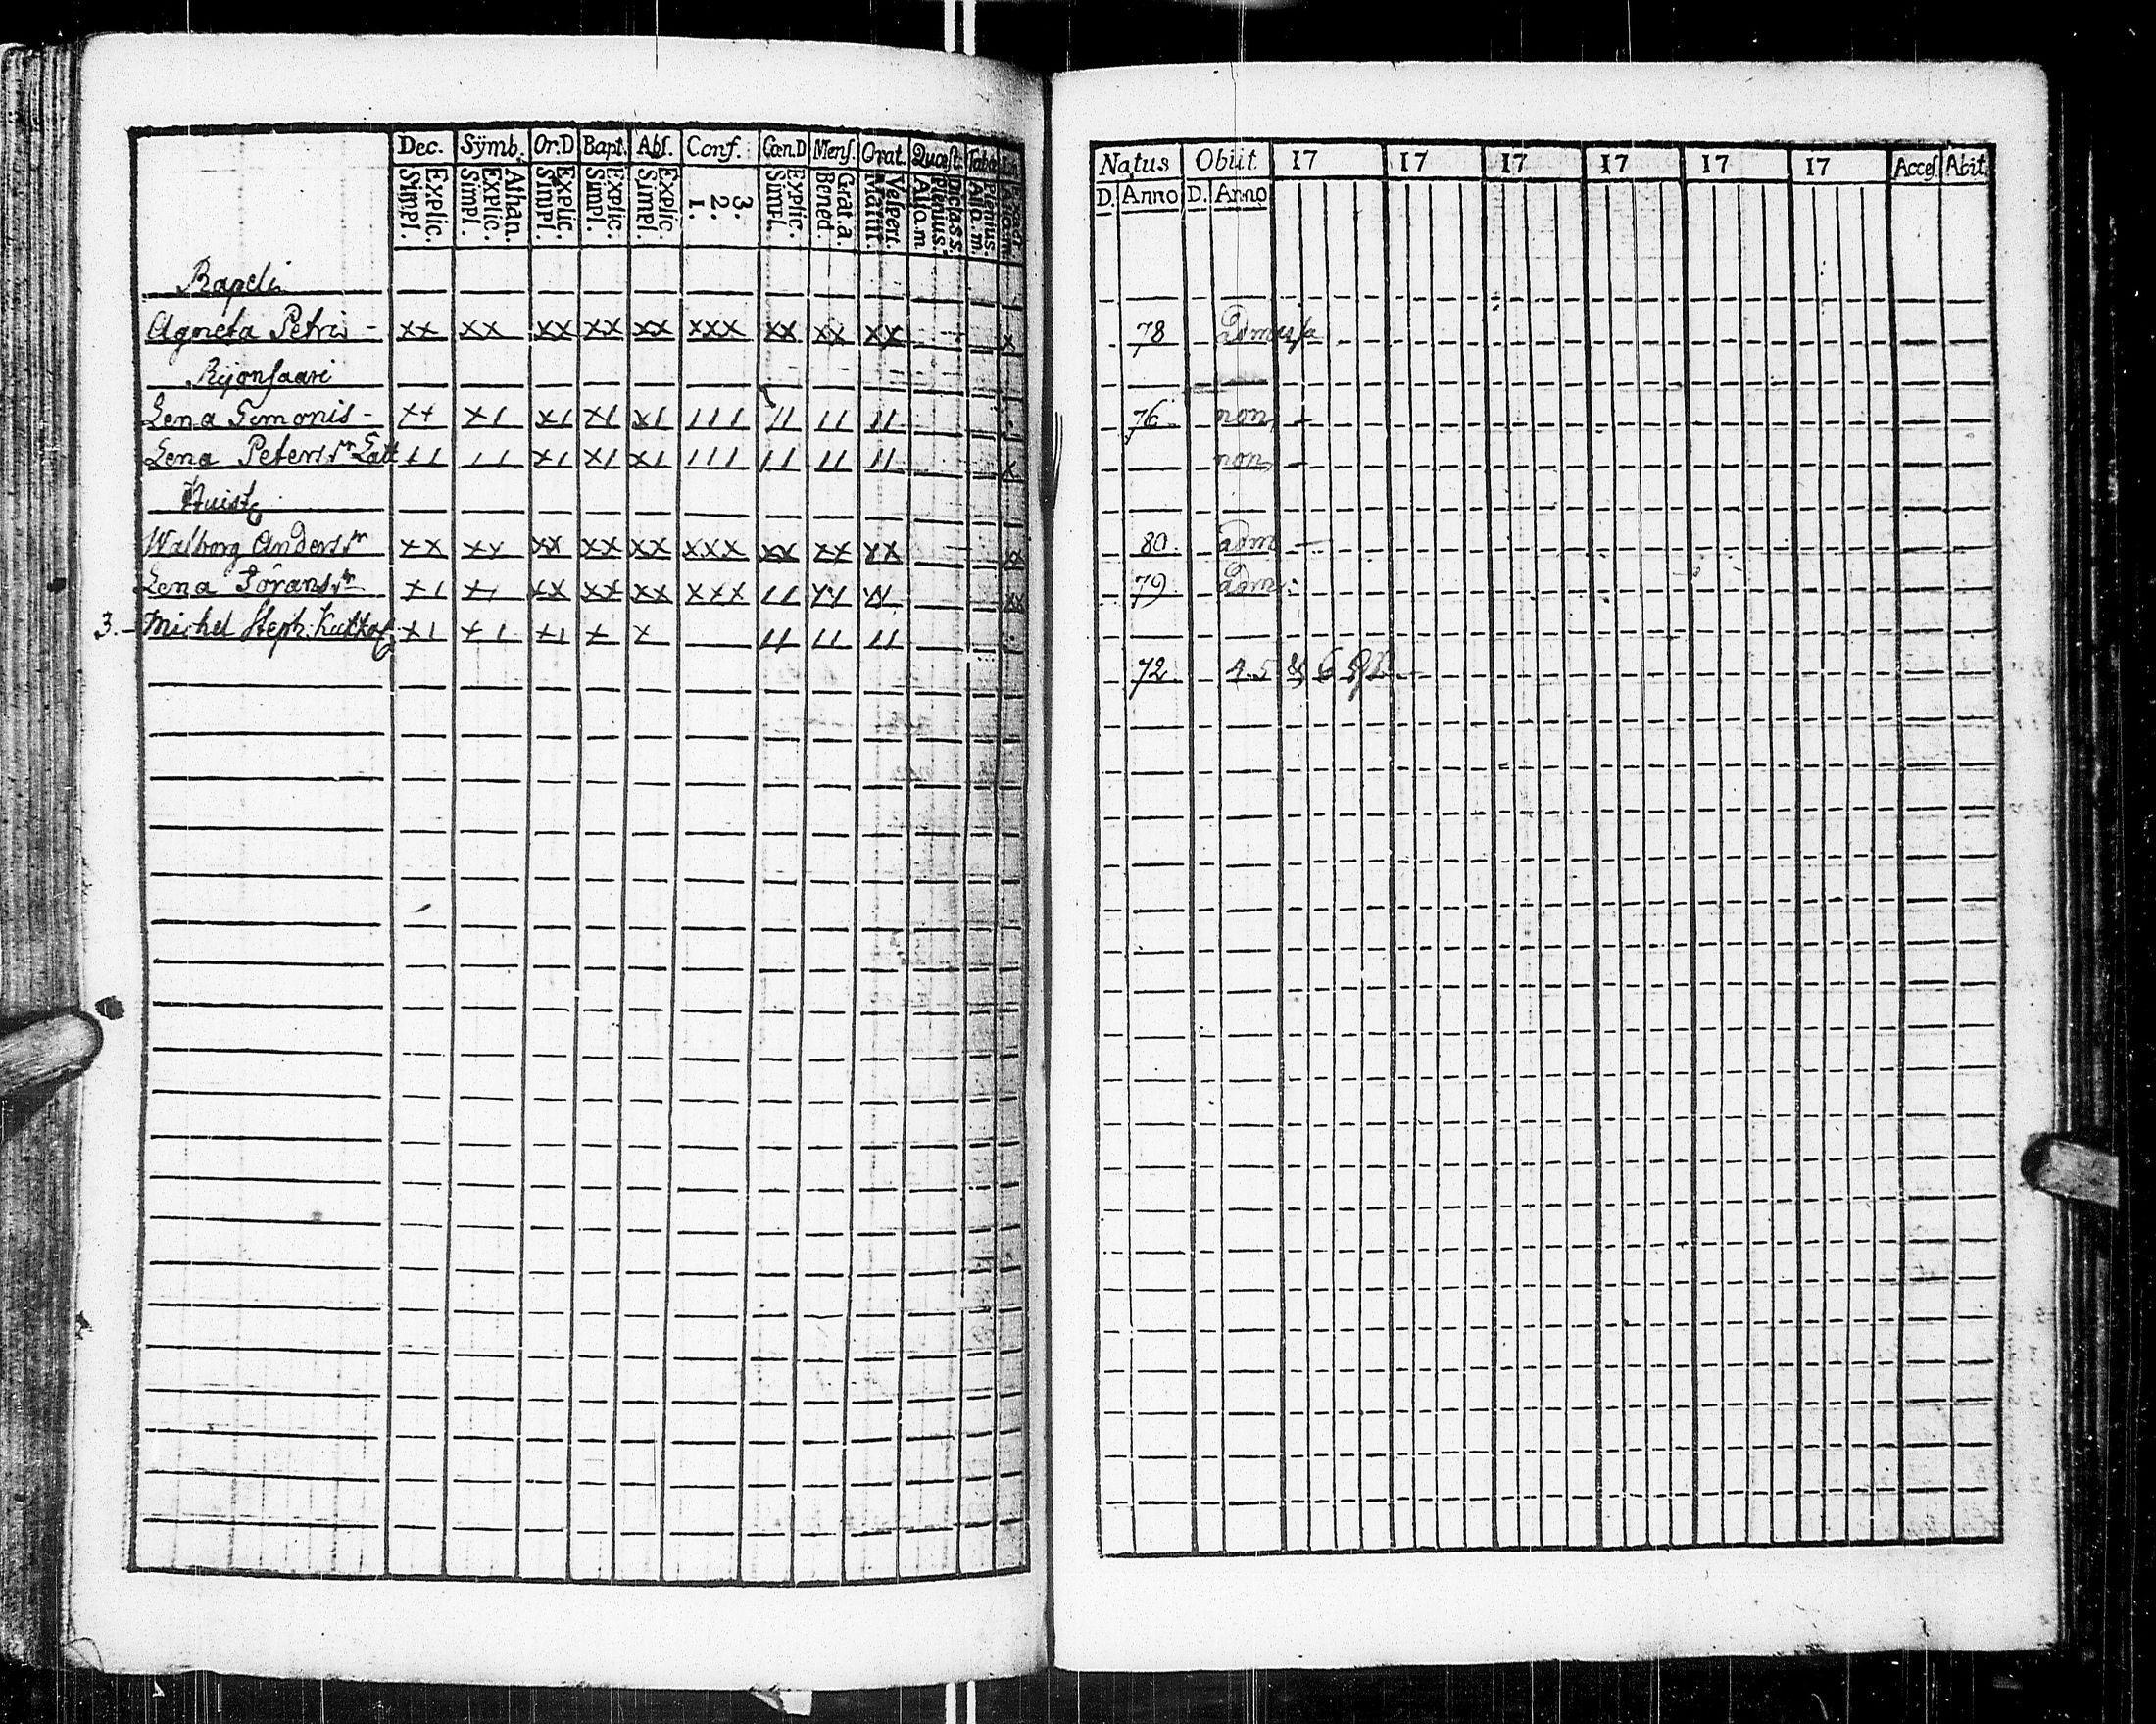 Dec. Sÿmb. Or.D Bapt. Abſ. Conf. Cœn.D Menſ. Orat. Quæſt. Taba.
Simpl. Explic. Simpl. Explic. Athan. Simpl. Explic. Simpl. Explic. Simpl. Explic. 1. 2. 3. Simpl. Explic. Bened. Grat.a. Matut. Veſpert. Alio.m. Plenius. Dicta s.s. Alio.m. Plenius.
Rapeli
Agneta Petri - xx xx xx xx xx xxx xx xx xx x
Rijonſaari
Lena Simonis - x+ x1 x1 x1 x1 111 11 11 11
Lena Petersſr 11 11 x1 x1 x1 111 11 11 11 x
Huist
Walborg Andersſr xx xx xx xx xx xxx xx xx xx xx
Lena Göransſr x1 x1 xx xx xx xxx 11 x1 11 xx
3. Michel Steph. x1 x1 x1 x x 11 11 11
Natus Obiit 17 17 17 17 17 17 Acceſ. Abit.
D. Anno D. Anno
78 admiſſa
76 non
non
80. adm
79 adm:
72 4. 5 & 6